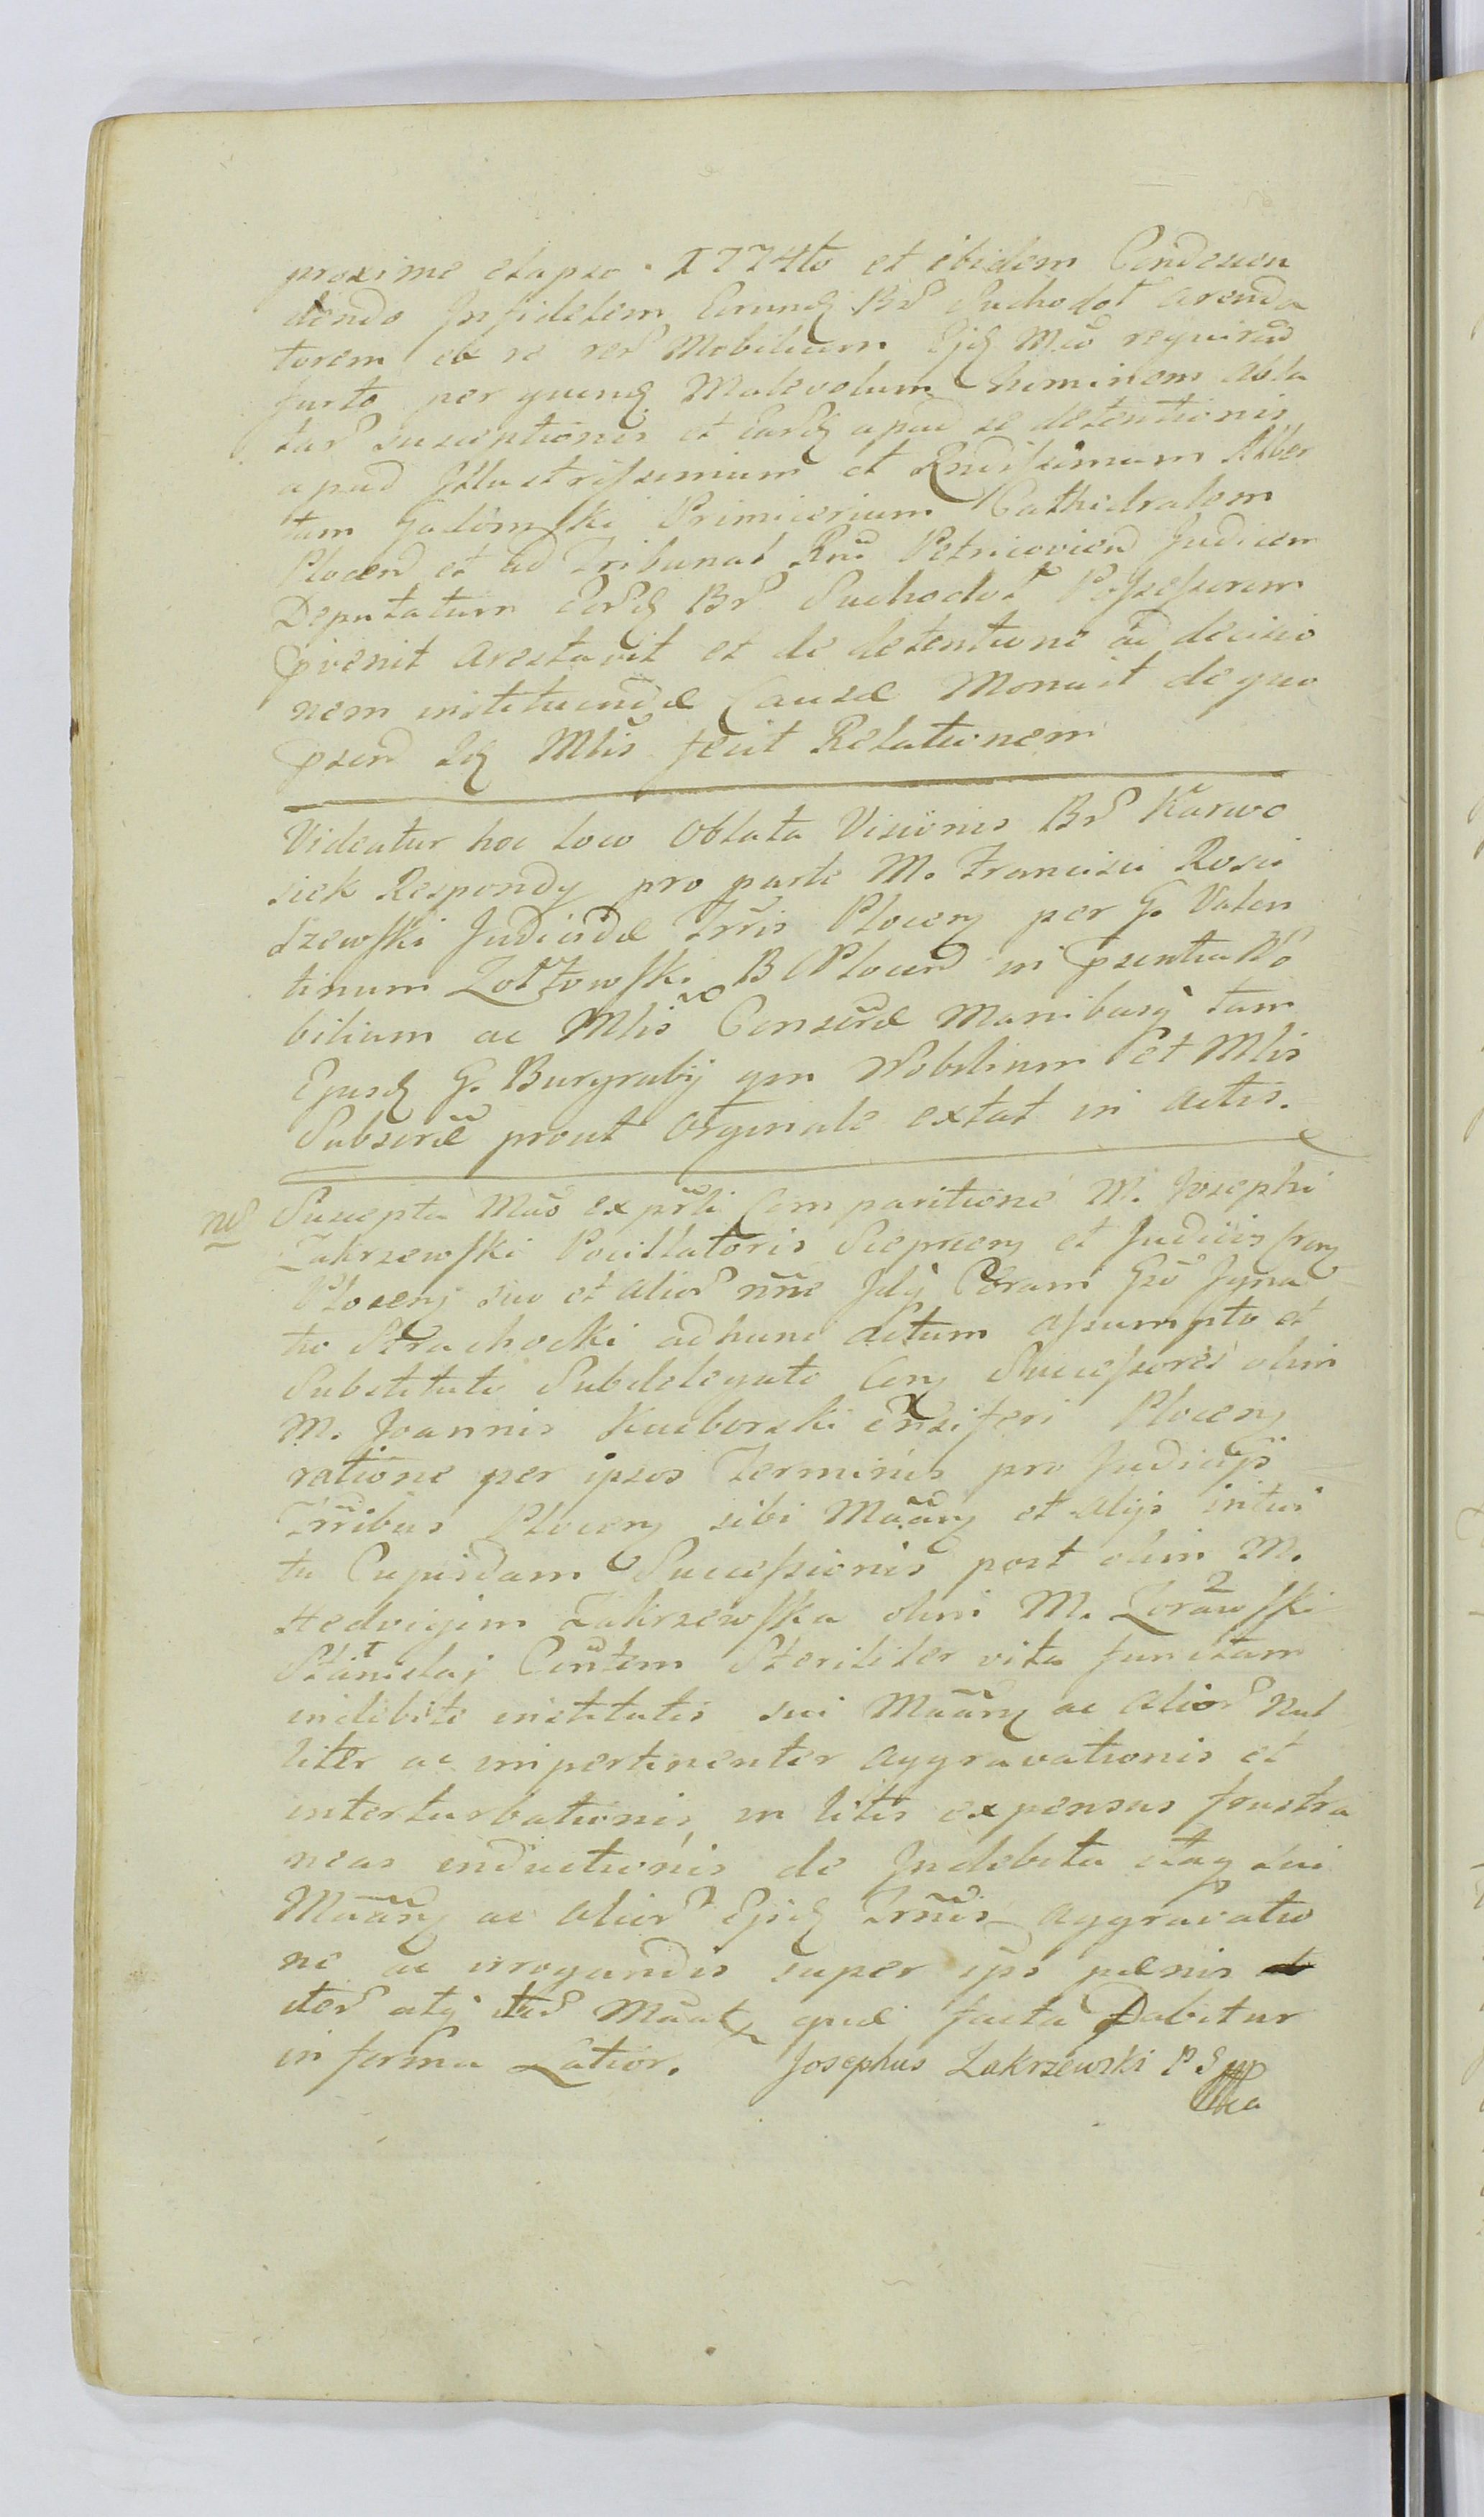 proxime elapso. 1774to et ibidem Condescen
dendo Infidelem Eorundq Brſ Suchodoł arenda
torem ob re rerſ Mobilium Ejq Mad requirend
furto per quendq Malevolum hominem abla
tarſ susceptionis et Eardq apud se detentionis
apud Illustrissimum et Rndissimum Alber
tum Gadomski Primicerium Cathedralem
Plocen et ad Tribunal Rni Petricovien Judicem
Deputatum Eorſdq Brſ Suchodoł Possessorem
pvenit arestavit et de detentione ad decisio
nem instituendæ Causæ Monuit de quo
psend Idq Mlis fecit Relationem
Videatur hoc loco Oblata Visionis Brſ Karwo
siek Respondy pro parte M. Francisci Rosci
szewski Judicis Trris Plocen per G. Valen
tinum Zołtowski B C Plocen in psentia No
bilium ac Mlis Conscræ Manibusq tam
Ejusdq G. Burgrabij qm Nobilium et Mlis
Subscræ prout Orginale extat in Actis.
Suscepta Mão ex prti Comparitione M. Josephi
Zakrzewski Pocillatoris Sieprcen et Judiciis
Plocen suo et aliorſ nne Jdq Coram Gso Igna
tio Strachocki ad hunc Actum assumpto et
Substituto Subdelegato Con Successores olim
M. Joannis Kuiborski Ensiferi Plocen
ratione per ipsos Terminis pro Judicijs
Trribus Plocen sibi Mãan et alijs intui
tu Cujusdam Successionis post olim M.
Hedvigim Zakrzewska olim M. Zorawski
Stanislaj Contem Steriliter vita functam
indebite institutis sui Mãan ac aliorſ nul
liter ac impertinenter aggravationis et
interturbationis in litis expensas frustra
neas inductionis de Indebita itaq sui
Mãan ac aliorſ Ejsdq Trnis aggravatio
ne ac irrogandis super ips pænis
iterſ atq iterſ Mãat quæ facta Dabitur
in forma Latior. Josephus Zakrzewski P S